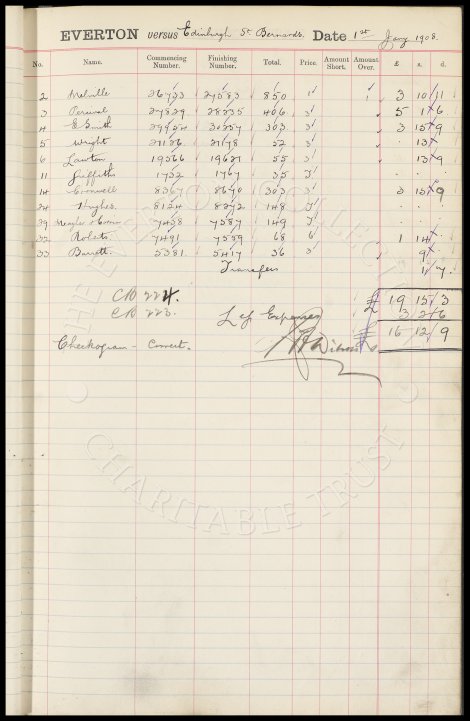 EVERTON versus Edinburgh St Bernards. Date 1st Jany 1908.
No. Name. Commencing Number. Finishing Number. Total. Price. Amount Short. Amount Over. £ s. d.
2 Melville 26733 27583 850 1 3 10 11
3 Percival 27829 28235 406 3 5 1 6
4 E Smith 29954 30257 303 3 3 15 9
5 Wright 21126 21178 52 3 13
6 Lawton 19566 19621 55 3 13 9
11 Griffiths 1732 1767 35 3
14 Cornwell 8367 8670 303 3 3 15 9
24 Hughes 8124 8272 148 3
29 7438 7587 149 3
32 Roberts 7491 7559 68 6 1 14
33 Barrett 5381 5417 36 3 9
Transfers 1 7
CB 224. £ 19 15 3
CB 223. Less Expenses 3 2 6
£ 16 12 9
Checkogram - Correct.
THE EVERTON COLLECTION
CHARITABLE TRUST